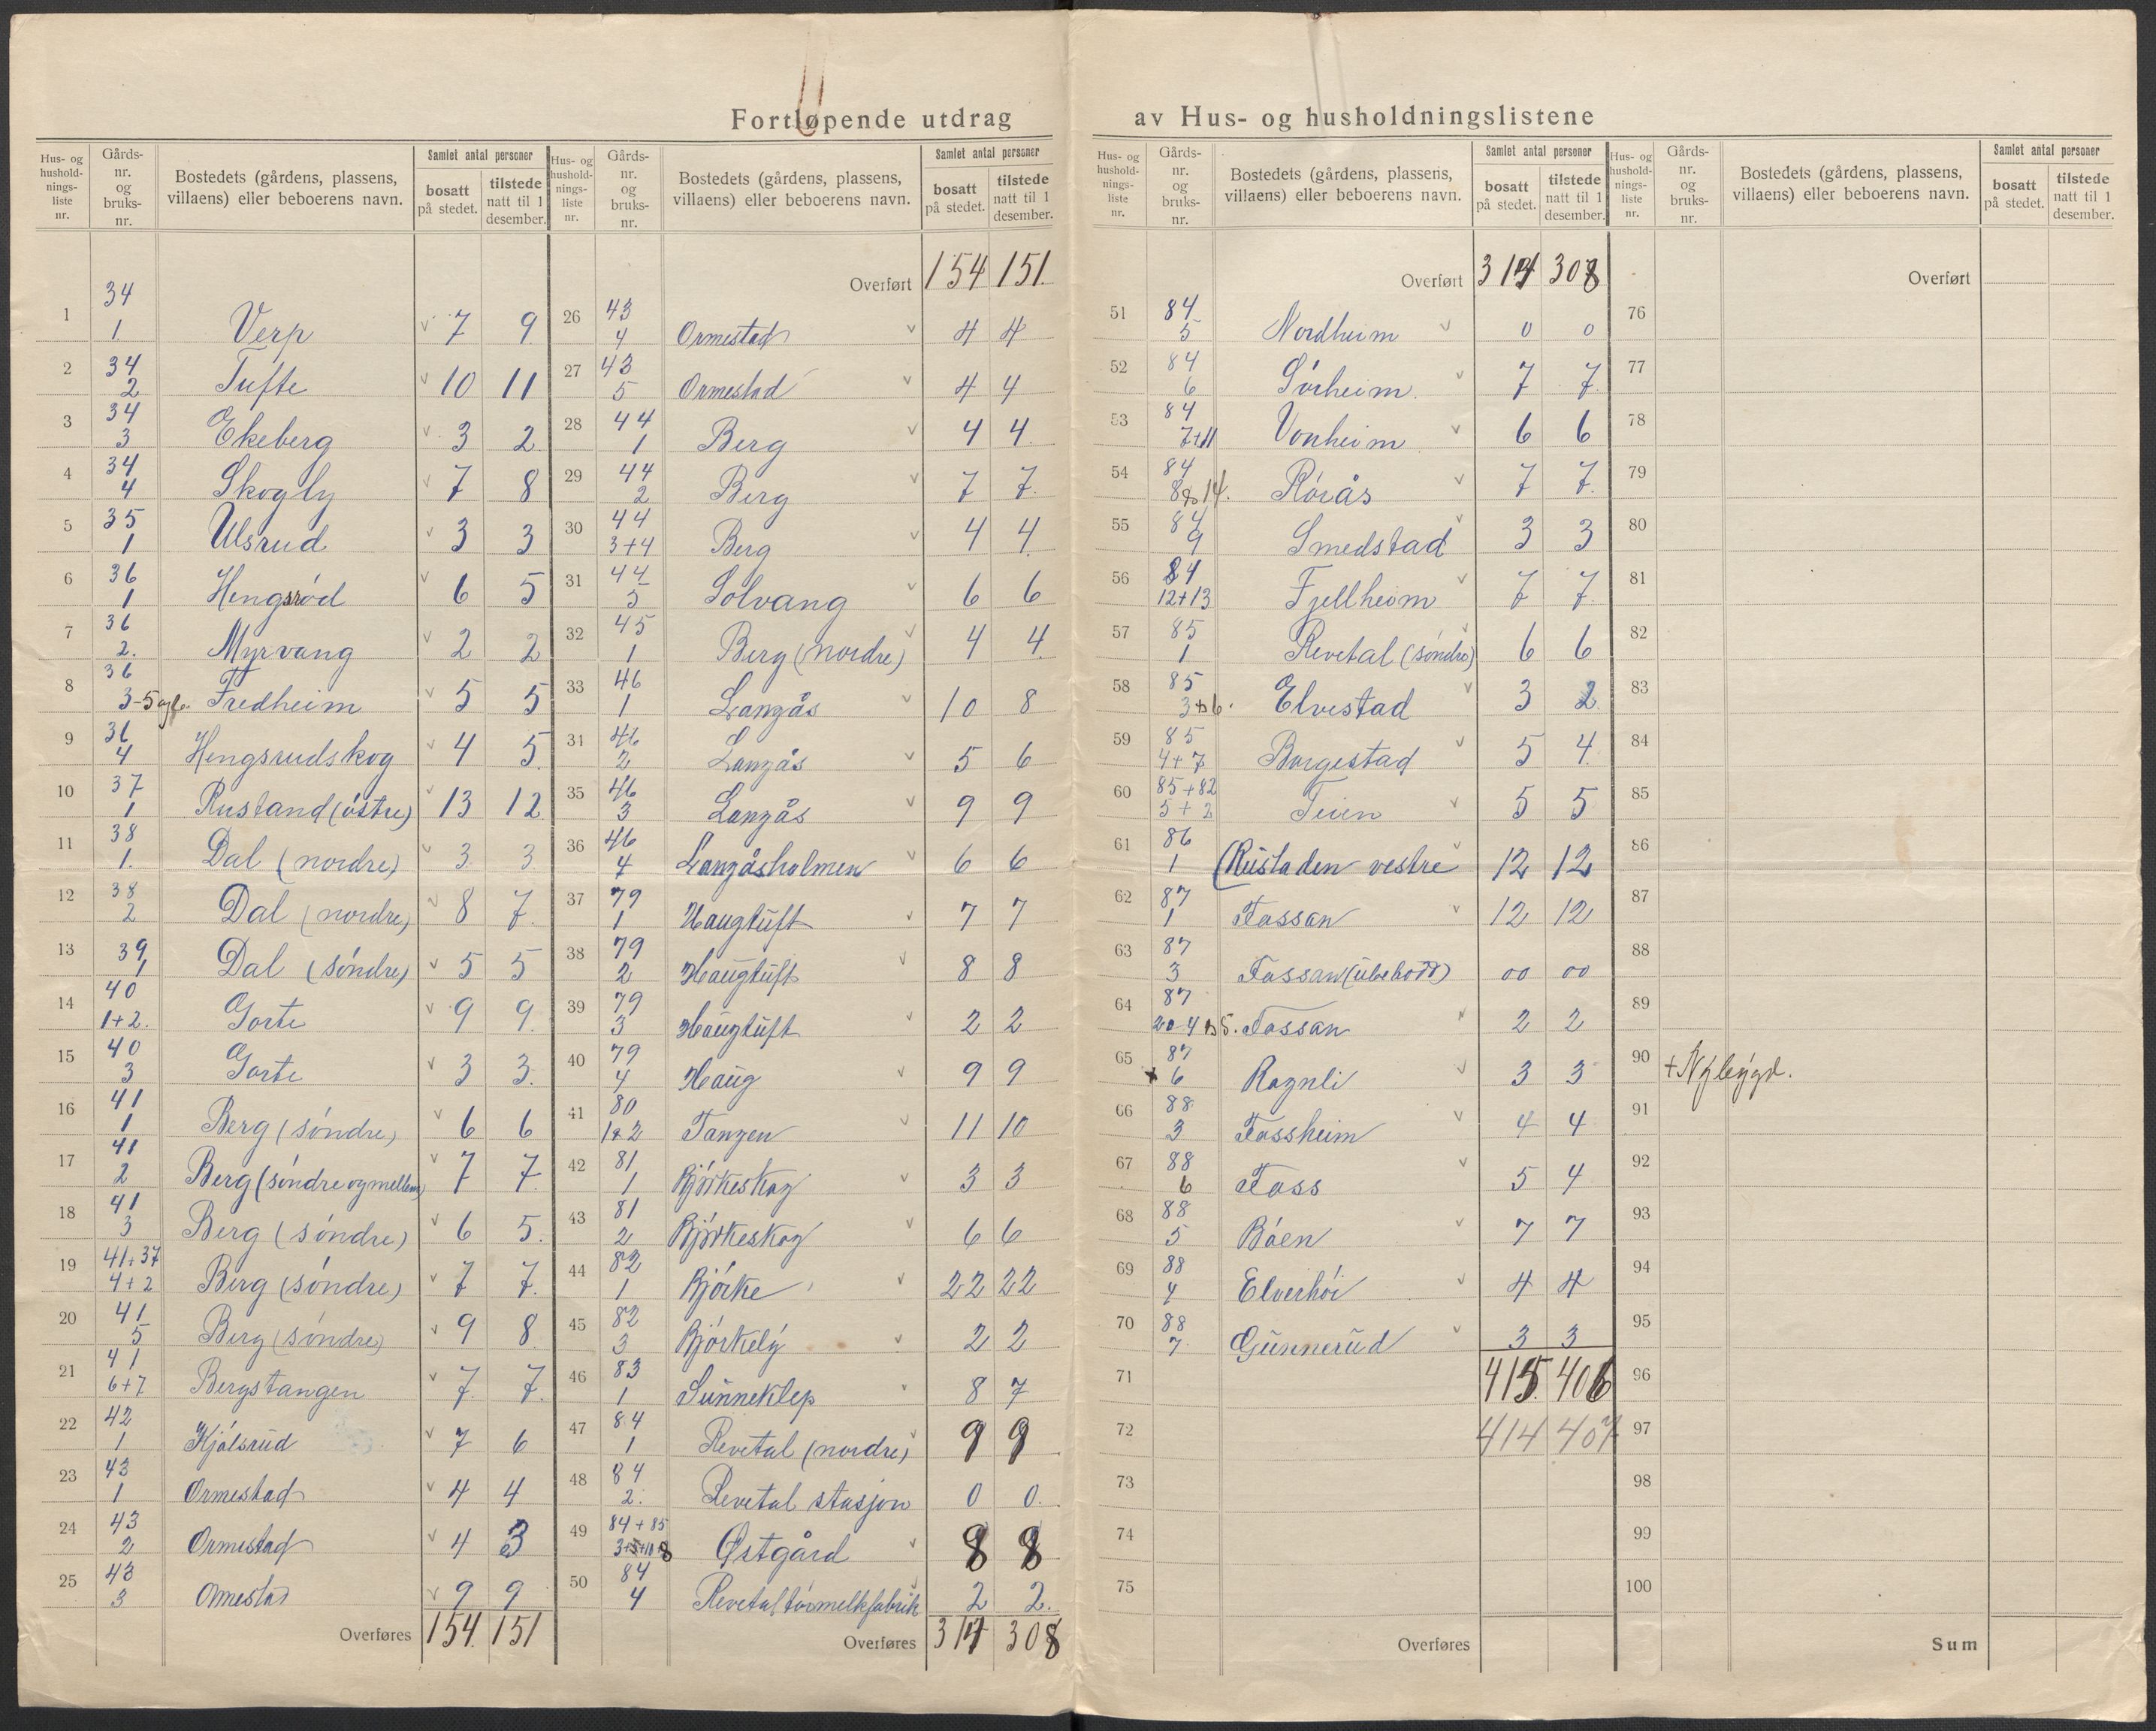 Fortløpende utdrag av Hus- og husholdningslistene
Hus- og husholdnings-liste nr. Gårds-nr. og bruks-nr. Bostedets (gårdens, plassens, villaens) eller beboerens navn. Samlet antal personer bosatt på stedet. tilstede natt til 1 desember.
1 34 1. Verp v 7 9
2 34 2 Tufte v 10 11
3 34 3 Ekeberg v 3 2
4 34 4 Skogly v 7 8
5 35 1 Ulsrud v 3 3
6 36 1 Hengsrød v 6 5
7 36 2. Myrvang v 2 2
8 36 3-5 og 6. Fredheim v 5 5
9 36 4 Hengsrudskog v 4 5
10 37 1 Rustand (østre) v 13 12
11 38 1. Dal (nordre) v 3 3
12 38 2 Dal (nordre) v 8 7.
13 39 1 Dal (søndre) v 5 5
14 40 1+2. Gorte v 9 9
15 40 3 Gorte v 3 3.
16 41 1 Berg (søndre) v 6 6
17 41 2 Berg (søndre og mellem) v 7 7
18 41 3 Berg (søndre) v 6 5.
19 41+37 4+2 Berg (søndre) v 7 7.
20 41 5 Berg (søndre) v 9 8
21 41 6+7 Bergstangen v 7. 7.
22 42 1 Kjølsrud v 7 6
23 43 1 Ormestad v 4 4
24 43 2 Ormestad v 4 3
25 43 3 Omestad v 9 9
Overføres 154. 151
Hus- og husholdnings-liste nr. Gårds-nr. og bruks-nr. Bostedets (gårdens, plassens, villaens) eller beboerens navn. Samlet antal personer bosatt på stedet. tilstede natt til 1 desember.
Overført 154 151.
26 43 4 Ormestad v 4 4
27 43 5 Ormestad v 4 4
28 44 1 Berg v 4 4.
29 44 2 Berg v 7 7.
30 44 3+4 Berg v 4 4.
31 44 5 Solvang v 6 6
32 45 1 Berg (nordre) v 4 4
33 46 1 Langås v 10 8
31 46 2 Langås v 5 6
35 46 3 Langås v 9 9
36 46 4 Langåsholmen v 6 6
37 79 1 Haugtuft v 7 7
38 79 2 Haugtuft v 8 8
39 79 3 Haugtuft v 2 2
40 79 4 Haug v 9 9
41 80 1+2 Tangen v 11 10
42 81 1 Bjørkeskog v 3 3
43 81 2 Bjørkeskog v 6 6
44 82 1 Bjørke v 22 22
45 82 3 Bjørkely v 2 2
46 83 1 Sunneklep v 8 7
47 84 1 Revetal (nordre) v 9 9
48 84 2. Revetal stasjon 0 0.
49 84+85 Østgård v 8 8
50 84 4 Revetal tørmelkfabrik 2 2.
Overføres 314 308
Hus- og husholdnings-liste nr. Gårds-nr. og bruks-nr. Bostedets (gårdens, plassens, villaens) eller beboerens navn. Samlet antal personer bosatt på stedet. tilstede natt til 1 desember.
Overført 314 308
51 84 5 Nordheim v 0 0
52 84 6 Sørheim. v 7 7.
53 84 7+11 Vonheim v 6 6
54 84 8 14. Rørås v 7 7.
55 84 9 Smedstad v 3 3
56 84 12+13 Fjellheim v 7 7.
57 85 1 Revetal (søndre) v 6 6
58 85 3 6. Elvestad v 3 2.
59 85 4+7 Borgestad v 5 4.
60 85+82 5+2 Teien v 5 5
61 86 1 (Rustaden vestre v 12 12
62 87 1 Fossan v 12 12
63 87 3 Fossan (ubebodd) 00 00
64 87 Fossan v 2 2
65 87 + 6 Rognli v 3 3
66 88 3 Fossheim v 4 4
67 88 6 Foss v 5 4
68 88 5 Båen v 7 7
69 88 4 Elverhøi v 4 4
70 88 7 Gunnerud v 3 3
71 415. 406
72 414 407
73
74
75
Overføres
Hus- og husholdnings-liste nr. Gårds-nr. og bruks-nr. Bostedets (gårdens, plassens, villaens) eller beboerens navn. Samlet antal personer bosatt på stedet. tilstede natt til 1 desember.
Overført
76
77
78
79
80
81
82
83
84
85
86
87
88
89
90 + Nybygd.
91
92
93
94
95
96
97
98
99
100
Sum